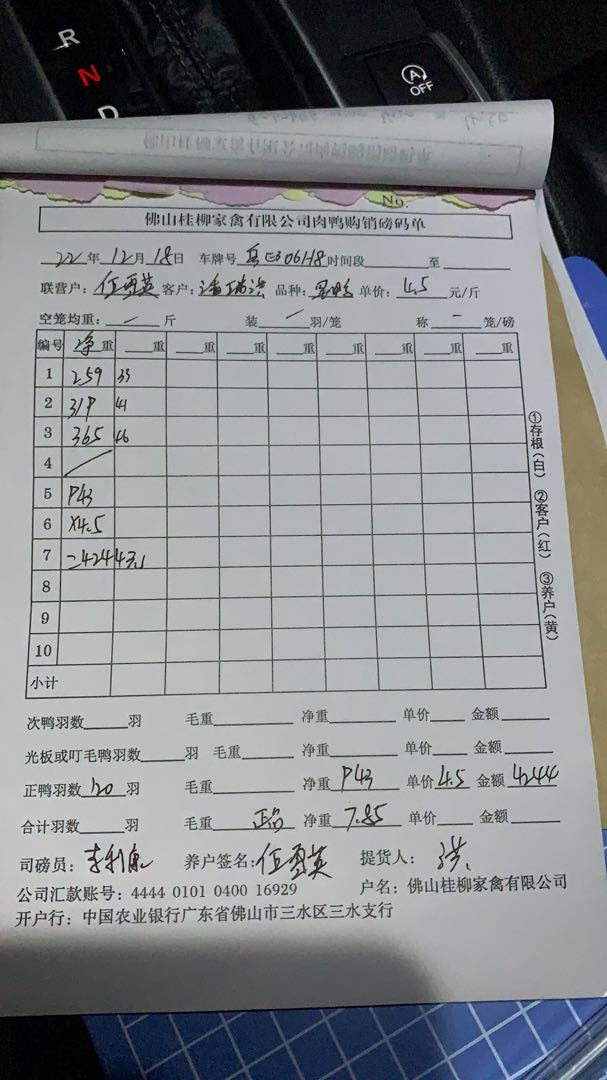 R
N
D
A
OFF
No
佛山桂柳家禽有限公司肉鸭购销磅码单
22年12月18日 车牌号 粤E306H8 时间段 至
联营户: 伍 英 客户: 潘 洪 品种: 单价: 4.5 元/斤
空笼均重: / 斤 装 / 羽/笼 称 - 笼/磅
编号 净重 重 重 重 重 重 重 重 重
1 259 33
2 319 41
3 365 46
4 /
5 943
6 X4.5
7 =4244 43.1
8
9
10
小计
①存根(白) ②客户(红) ③养户(黄)
次鸭羽数 羽 毛重 净重 单价 金额
光板或叮毛鸭羽数 羽 毛重 净重 单价 金额
正鸭羽数 120 羽 毛重 净重 943 单价 4.5 金额 4244
合计羽数 羽 毛重 净重 7.85 单价 金额
司磅员: 李利 养户签名: 伍 英 提货人: 洪
公司汇款账号: 4444 0101 0400 16929 户名: 佛山桂柳家禽有限公司
开户行: 中国农业银行广东省佛山市三水区三水支行